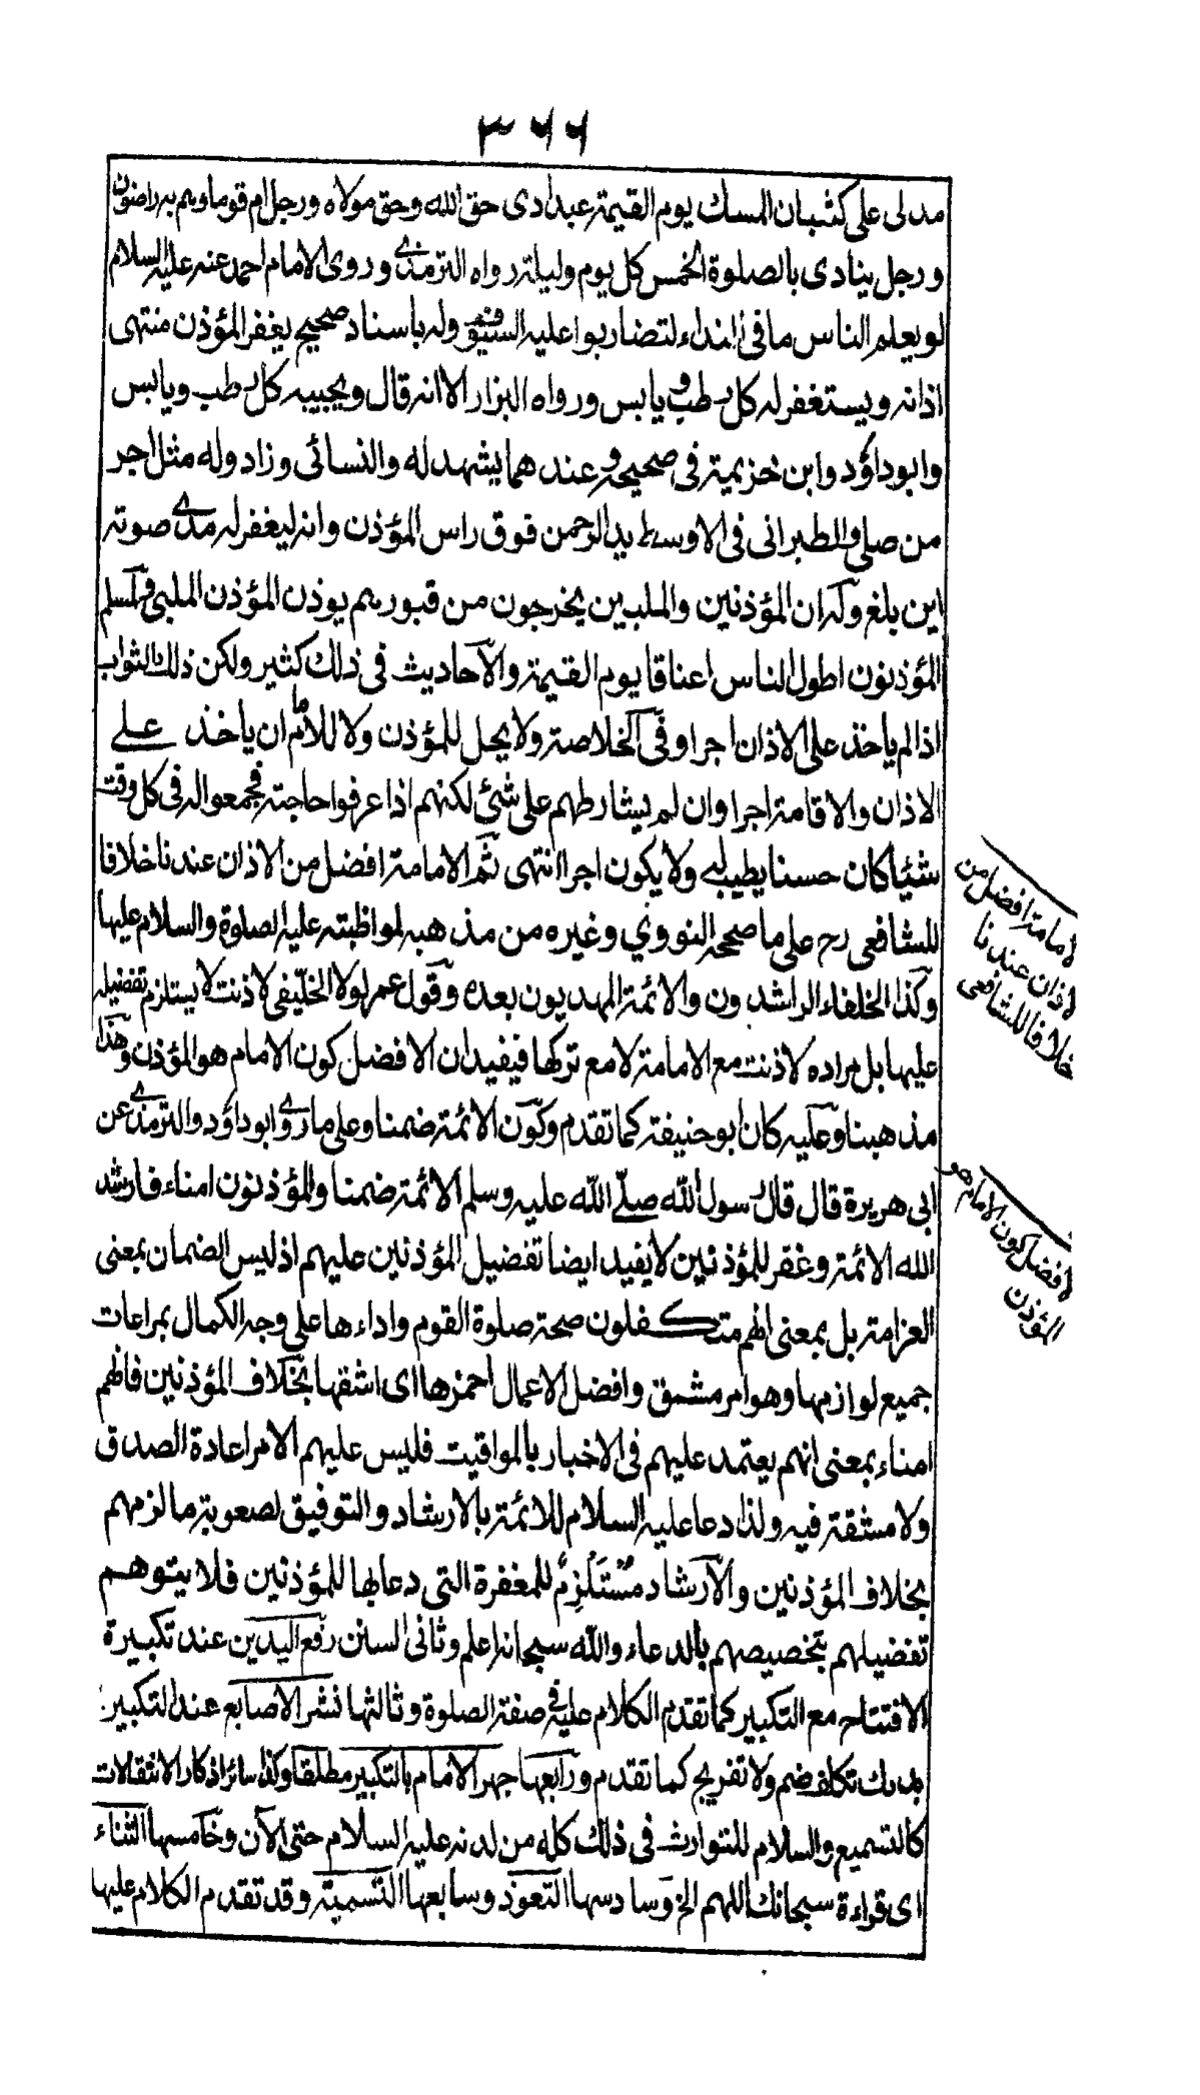 ٣٦٦
مدلی علی کثبان المسك یوم القیمۃ عبد ادی حق الله وحق مولاه ورجل ام قوما وہم بہ راضون
ورجل ینادی بالصلوة الخمس کل یوم ولیلۃ رواه الترمذی وروی الامام احمد عنہ علیہ السلام
لو یعلم الناس ما فی النداء لتضاربوا علیہ السیوف ولہ باسناد صحیح یغفر المؤذن منتہی
اذانہ ویستغفر لہ کل رطب ویابس ورواه البزار الا انہ قال ویجیبہ کل رطب ویابس
وابوداؤد وابن خزیمۃ فی صحیحہ وعندهما یشهد له والنسائی وزاد وله مثل اجر
من صلی وللطبرانی فی الاوسط ید الرحمن فوق راس المؤذن وانہ لیغفر لہ مدی صوتہ
این بلغ ولہ ان المؤذنین والملبین یخرجون من قبورہم یوذن المؤذن الملبی ولمسلم
المؤذنون اطول الناس اعناقا یوم القیمۃ والاحادیث فی ذلك کثیر ولکن ذلك الثواب
اذا لم یاخذ علی الاذان اجرا وفی الخلاصۃ ولا یحل للمؤذن ولا للامام ان یاخذ علی
الاذان والاقامۃ اجرا وان لم یشارطهم علی شئ لکنهم اذا عرفوا حاجتہ فجمعوا لہ فی کل وقت
شیئا کان حسنا یطیب لہ ولا یکون اجرا انتهی ثم الامامۃ افضل من الاذان عندنا خلافا
للشافعی رح علی ما صححہ النووی وغیره من مذهبہ لمواظبتہ علیہ الصلوة والسلام علیها
وکذا الخلفاء الراشدون والائمۃ المهدیون بعده وقول عمر لولا الخلیفی لاذنت لا یستلزم تفضیلہ
علیها بل مراده لاذنت مع الامامۃ لا مع ترکها فیفید ان الافضل کون الامام هو المؤذن وهذا
مذهبنا وعلیہ کان ابوحنیفۃ کما تقدم وکون الائمۃ ضمنا وعلی ما روی ابوداؤد والترمذی عن
ابی هریرة قال قال رسول الله صلی الله علیہ وسلم الائمۃ ضمنا والمؤذنون امناء فارشد
الله الائمۃ وغفر للمؤذنین لا یفید ایضا تفضیل المؤذنین علیهم اذ لیس الضمان بمعنی
الغرامۃ بل بمعنی انهم متکفلون صحۃ صلوة القوم واداءها علی وجہ الکمال بمراعات
جمیع لوازمها وهو امر مشق وافضل الاعمال احمزها ای اشقها بخلاف المؤذنین فانهم
امناء بمعنی انهم یعتمد علیهم فی الاخبار بالمواقیت فلیس علیهم الا مراعادة الصدق
ولا مشقۃ فیہ ولذا دعا علیہ السلام للائمۃ بالارشاد والتوفیق لصعوبۃ ما لزمهم
بخلاف المؤذنین والارشاد مُسْتَلْزِمٌ للمغفرة التی دعا بها للمؤذنین فلا یتوهم
تفضیلهم بتخصیصهم بالدعاء والله سبحانہ اعلم وثانی السنن رفع الیدین عند تکبیرة
الافتتاح مع التکبیر کما تقدم الکلام علیہ فی صفۃ الصلوة وثالثها نشر الاصابع عند التکبیر
بلا تکلف ضم ولا تفریج کما تقدم ورابعها جهر الامام بالتکبیر مطلقا وکذا سائر اذکار الانتقالات
کالتسمیع والسلام للتوارث فی ذلك کله من لدنہ علیہ السلام حتی الآن وخامسها الثناء
ای قراءة سبحانك اللهم الخ وسادسها التعوذ وسابعها التسمیۃ وقد تقدم الکلام علیها
لامامۃ افضل من
لاذان عندنا
خلافا للشافعی
لافضل کون الامام هو
المؤذن